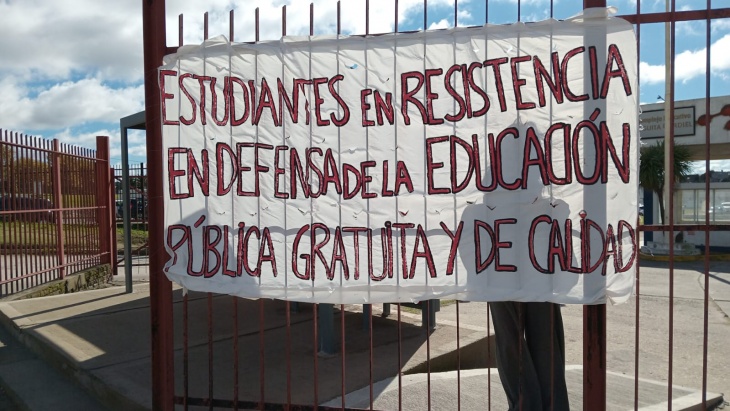 ESTUDIANTES EN RESISTENCIA
EN DEFENSA DE LA EDUCACIÓN
PÚBLICA GRATUITA Y DE CALIDAD